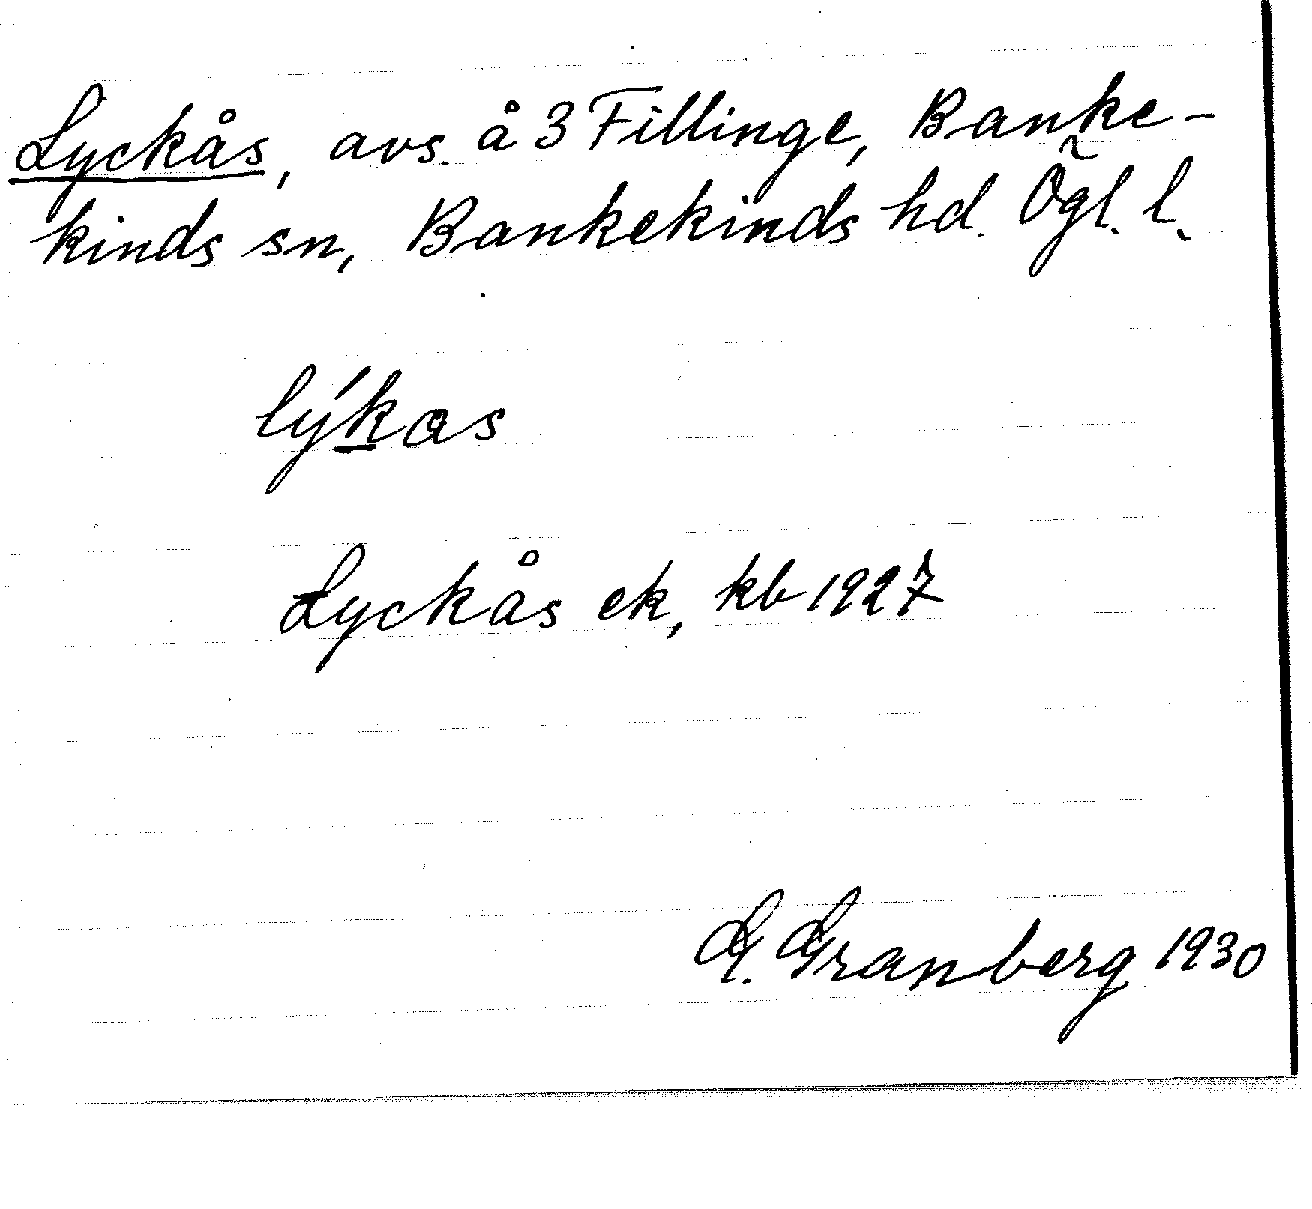 Lyckås, avs. å 3 Fillinge, Banke-
kinds sn, Bankekinds hd. Ögl. l.
lýkas
Lyckås ek, kb 1927
G. Granberg 1930